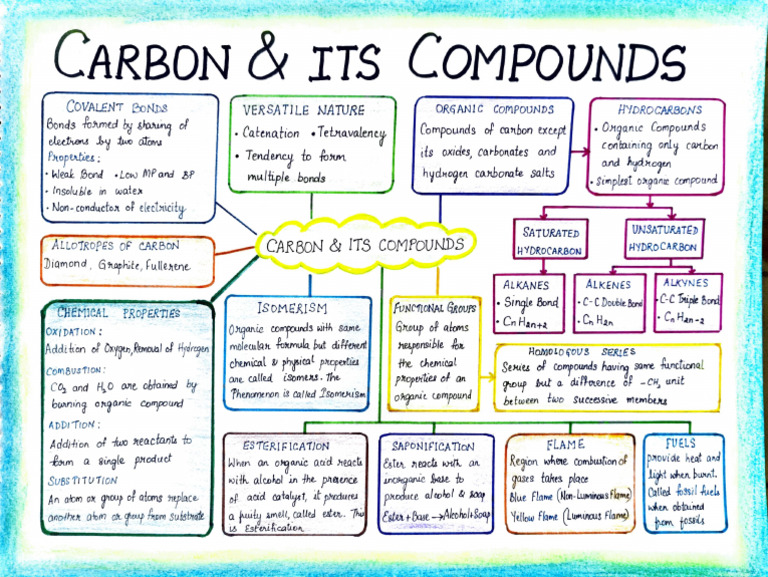 CARBON & ITS COMPOUNDS
COVALENT BONDS
Bonds formed by sharing of
electrons by two atoms
Properties:
• Weak Bond • Low MP and BP
• Insoluble in water
• Non-conductor of electricity
VERSATILE NATURE
• Catenation • Tetravalency
• Tendency to form
multiple bonds
ORGANIC COMPOUNDS
Compounds of carbon except
its oxides, carbonates and
hydrogen carbonate salts
HYDROCARBONS
• Organic Compounds
containing only carbon
and hydrogen
• Simplest organic compound
ALLOTROPES OF CARBON
Diamond, Graphite, Fullerene
CARBON & ITS COMPOUNDS
SATURATED
HYDROCARBON
UNSATURATED
HYDROCARBON
ALKANES
• Single Bond
• CnH2n+2
ALKENES
• C-C Double Bond
• CnH2n
ALKYNES
• C-C Triple Bond
• CnH2n-2
CHEMICAL PROPERTIES
OXIDATION:
Addition of Oxygen, Removal of Hydrogen
COMBUSTION:
CO2 and H2O are obtained by
burning organic compound
ADDITION:
Addition of two reactants to
form a single product
SUBSTITUTION
An atom or group of atoms replace
another atom or group from substrate
ISOMERISM
Organic compounds with same
molecular formula but different
chemical & physical properties
are called isomers. The
Phenomenon is called Isomerism
FUNCTIONAL GROUPS
Group of atoms
responsible for
the chemical
properties of an
organic compound
HOMOLOGOUS SERIES
Series of compounds having same functional
group but a difference of -CH2 unit
between two successive members
ESTERIFICATION
When an organic acid reacts
with alcohol in the presence
of acid catalyst, it produces
a fruity smell, called ester. This
is Esterification.
SAPONIFICATION
Ester reacts with an
inorganic base to
produce alcohol & soap
Ester + Base → Alcohol + Soap
FLAME
Region where combustion of
gases takes place
Blue Flame (Non-Luminous Flame)
Yellow Flame (Luminous Flame)
FUELS
provide heat and
light when burnt.
Called fossil fuels
when obtained
from fossils